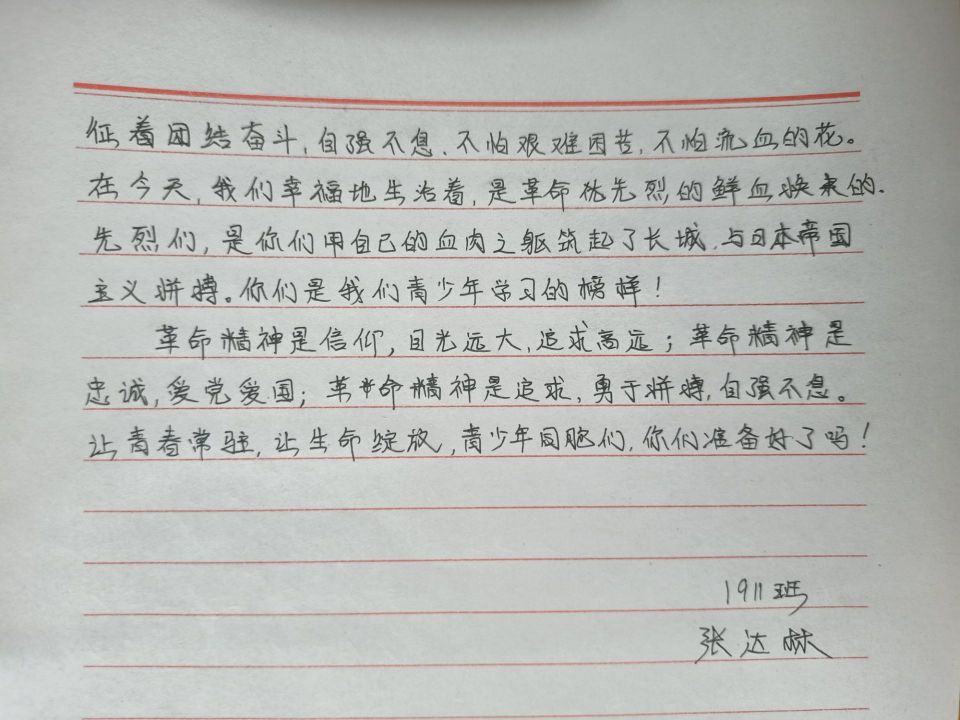 征着团结奋斗，自强不息、不怕艰难困苦，不怕流血的花。
在今天，我们幸福地生活着，是革命优先烈的鲜血换来的.
先烈们，是你们用自己的血肉之躯筑起了长城，与日本帝国
主义拼搏。你们是我们青少年学习的榜样！
革命精神是信仰，目光远大，追求高远；革命精神是
忠诚，爱党爱国；革命精神是追求，勇于拼搏，自强不息。
让青春常驻，让生命绽放，青少年同胞们，你们准备好了吗！
1911班
张达林